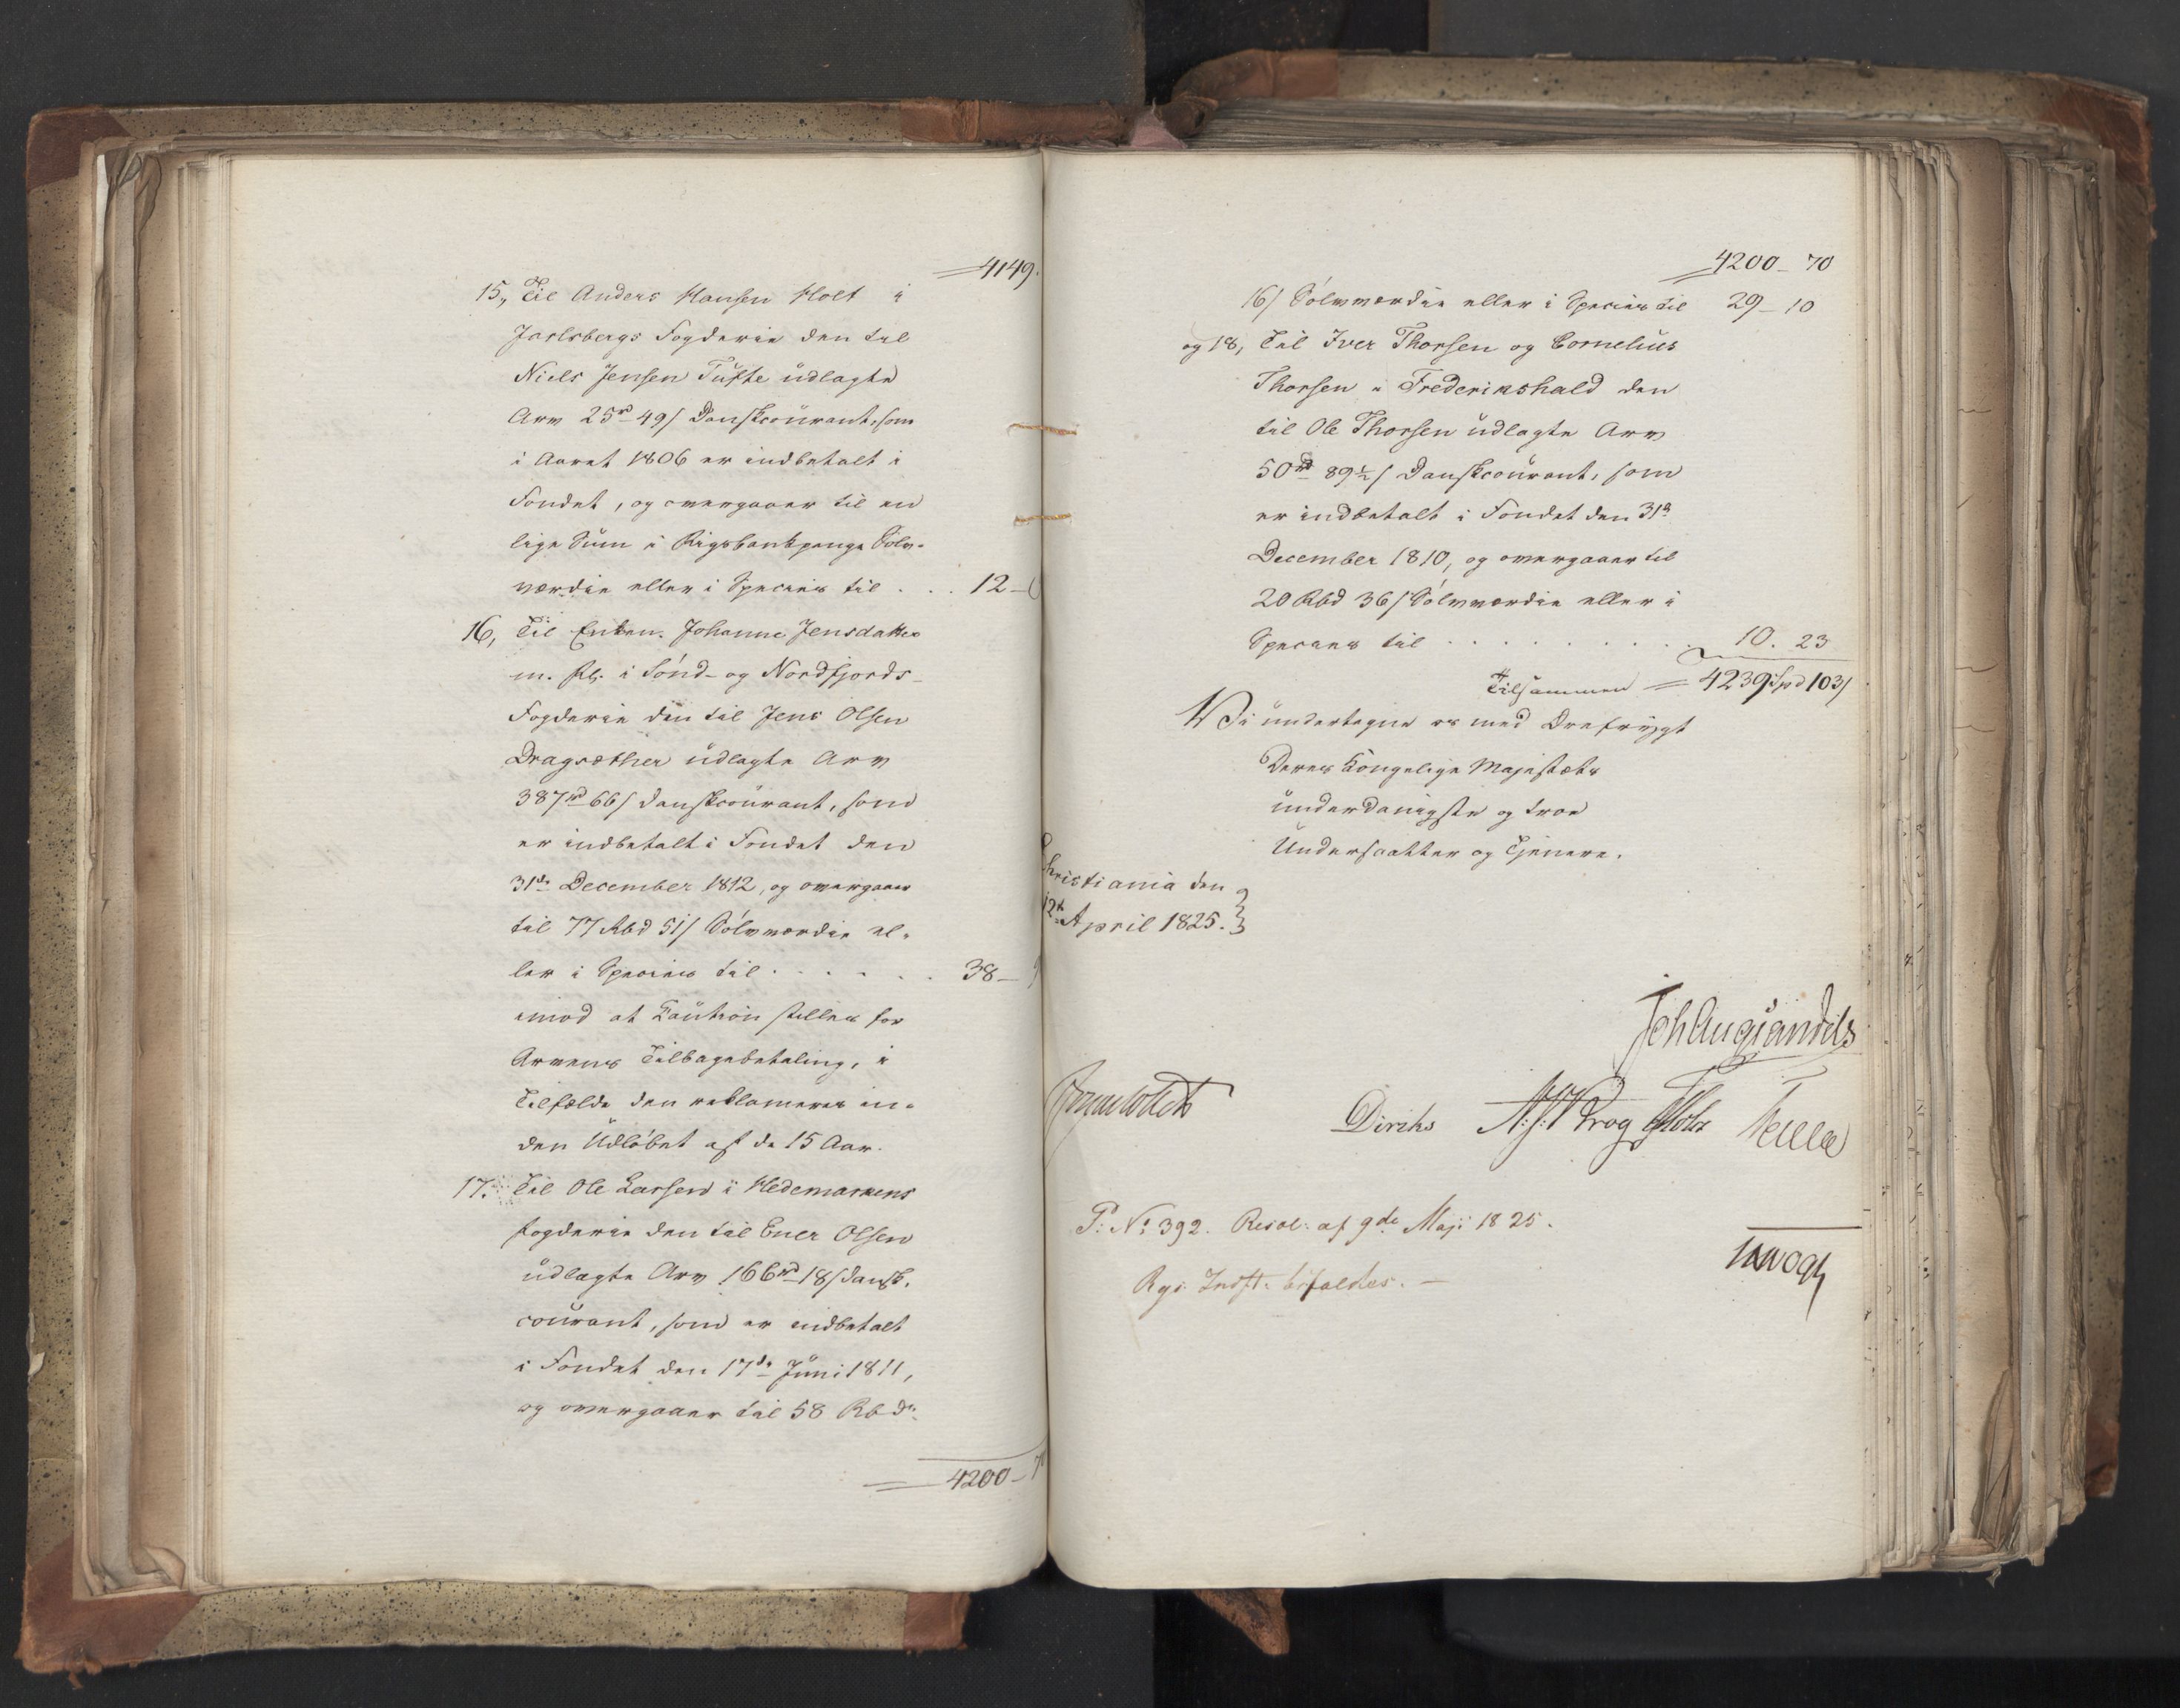 4149.
15, Til Anders Hansen Holt i
Jarlsbergs Fogderie den til
Niels Jensen Tufte udlagte
Arv 25rd 49/ Danskcourant, som
i Aaret 1806 er indbetalt i
Fondet, og overgaaer til en
lige Sum i Rigsbankpenge Sølv-
værdie eller i Species til . . . 12 –
16, Til Enken Johanne Jensdatter
m. fl. i Sönd- og Nordfjords-
Fogderie den til Jens Olsen
Dragsæther udlagte Arv
387rd 66/ Danskcourant, som
er indbetalt i Fondet den
31de December 1812, og overgaaer
til 77 Rbd 51/ Sölvværdie el-
ler i Species til . . . . . . 38 –
imod at Caution stilles for
Arvens Tilbagebetaling, i
Tilfælde den reklameres in-
den Udlöbet af de 15 Aar.
17. Til Ole Larsen i Hedemarkens
Fogderie den til Ener Olsen
udlagte Arv 166rd 18/ Dansk-
courant, som er indbetalt
i Fondet den 17de Juni 1811,
og overgaaer til 58 Rbdr.
4200 – 7
4200 – 70
16/ Sölvværdie eller i Species til 29 – 10
og 18, Til Iver Thorsen og Cornelius
Thorsen i Frederikshald den
til Ole Thorsen udlagte Arv
50rd 89½/ Danskcourant, som
er indbetalt i Fondet den 31te
December 1810, og overgaaer til
20 Rbd 36/ Sölvværdie eller i
Species til . . . . . . . . . 10. 23
Tilsammen = 4239 Spd 103/
Vi undertegne os med Ærefrygt
Deres Kongelige Majestæts
underdanigste og troe
Undersaatter og Tjenere.
Christiania den
12te April 1825.
Joh Aug Sandels
Diriks N:J: Krog
P: No 392. Resol: af 9de Maji 1825.
Rgs: Indst: bifaldes. –